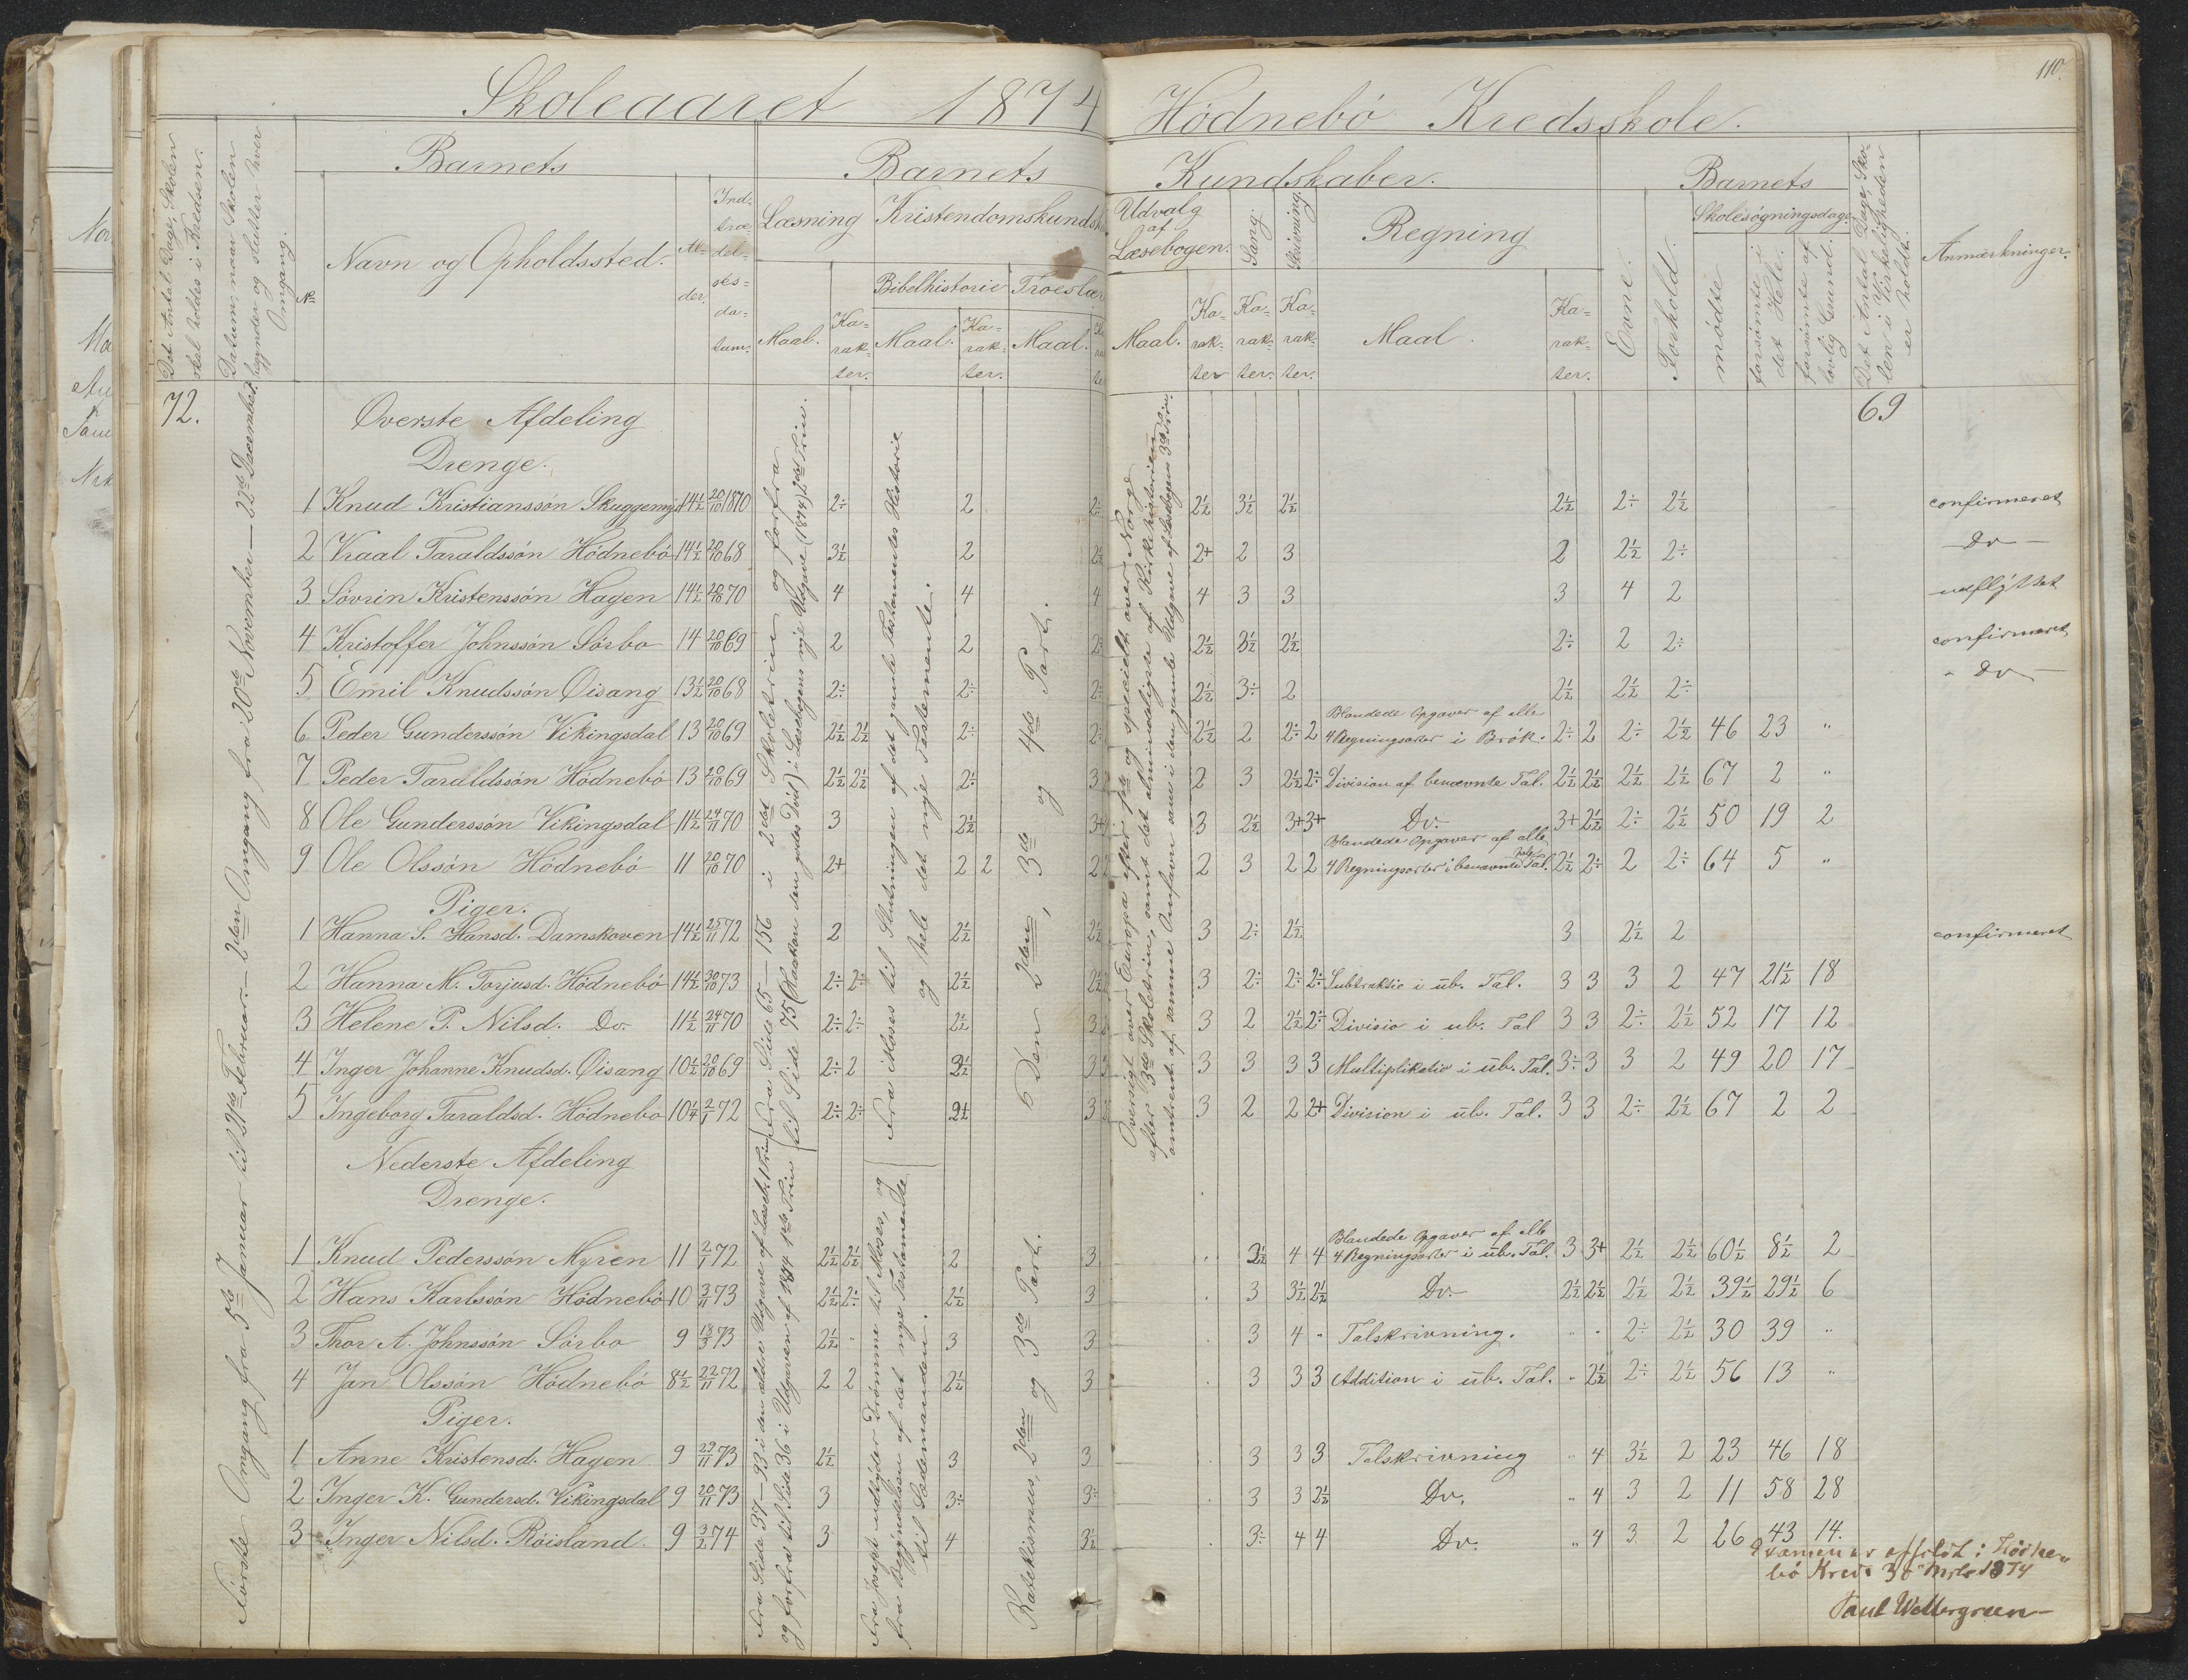 110.
Skoleaaret 1874 Hödnebö Kredsskole.
Det Antal Dage, Skolen
skal holdes i Kredsen.
Datum, naar Skolen
begynder og slutter hver
Omgang.
Barnets
No
Navn og Opholdssted.
Al-
der.
Ind-
træ-
del-
ses-
da-
tum.
Barnets Kundskaber.
Læsning
Maal.
Ka-
rak-
ter.
Kristendomskundsk
Bibelhistorie
Maal.
Ka-
rak-
ter.
Troeslær
Maal.
Udvalg
af
Læsebogen.
Maal.
Ka-
rak-
ter
Sang.
Ka-
rak-
ter.
Skrivning.
Ka-
rak-
ter.
Regning
Maal.
Ka-
rak-
ter.
Barnets
Evne.
Forhold.
Skolesögningsdage.
mödte
forsömte i
det Hele.
forsömte af
lovlig Grund.
Det Antal Dage, Sko-
len i Virkeligheden
er holdt.
Anmærkninger.
72.
69
Förste Omgang fra 5te Januar til 21de Februar. — 2den Omgang fra 20de November — 22de December.
Overste Afdeling
Drenge.
1 Knud Kristianssön Skuggemyr 14½ 20/10 1870 2÷ 2 2÷ 2½ 3½ 2½ 2½ 2÷ 2½ confirmeret
2 Kraal Taraldssön Hödnebö 14½ 20/10 68 3½ 2 2½ 2+ 2 3 2 2½ 2÷ Do
3 Sövrin Kristenssön Hagen 14½ 20/10 70 4 4 4 4 3 3 3 4 2 udflyttet
4 Kristoffer Johnssön Sörbo 14 20/10 69 2 2 2÷ 2½ 3½ 2½ 2÷ 2 2÷ confirmeret
5 Emil Knudssön Öisang 13½ 20/10 68 2÷ 2÷ 2÷ 2½ 3÷ 2 2½ 2½ 2÷ Do
6 Peder Gunderssön Vikingsdal 13 20/10 69 2½ 2½ 2÷ 2÷ 2½ 2 2÷ 2 Blandede Opgaver af alle
4 Regningsarter i Brök. 2÷ 2 2÷ 2½ 46 23 "
7 Peder Taraldssön Hödnebö 13 20/10 69 2½ 2½ 2÷ 3 2 3 2½ 2÷ Division af benævnte Tal. 2½ 2½ 2½ 2½ 67 2 "
8 Ole Gunderssön Vikingsdal 11½ 24/11 70 3 2½ 3+ 3 2½ 3+ 3+ Do. 3+ 2½ 2÷ 2½ 50 19 2
9 Ole Olssön Hödnebö 11 20/10 70 2+ 2 2 2 2 3 2 2 Blandede Opgaver af alle
4 Regningsarter i benævnte Tal. 2½ 2÷ 2 2÷ 64 5 "
Piger.
1 Hanna S. Hansd. Damskoven 14½ 25/11 72 2 2½ 2½ 3 2÷ 2½ 3 2½ 2 confirmeret
2 Hanna M. Torjusd. Hödnebö 14½ 30/10 73 2÷ 2÷ 2½ 2½ 3 2÷ 2÷ 2÷ Subtraktio i üb. Tal. 3 3 3 2 47 21½ 18
3 Helene P. Nilsd. Do. 11½ 24/11 70 2÷ 2÷ 2½ 3 3 2 2½ 2÷ Divisio i ub. Tal 3 3 2÷ 2½ 52 17 12
4 Inger Johanne Knudsd. Öisang 10½ 20/10 69 2÷ 2 2½ 3 3 3 3 3 Multiplikatio i üb. Tal. 3÷ 3 3 2 49 20 17
5 Ingeborg Taraldsd. Hödnebö 10¼ 2/1 72 2÷ 2÷ 2½ 3 3 2 2 2+ Division i üb. Tal. 3 3 2÷ 2½ 67 2 2
Fra Side 65 — 156 i 2det Skoletrin og forfra
til Side 75 (Haakon den godes Död) i Læsebogens nye Udgave (1874) 2det Trin.
Fra Moses til Slutningen af det gamle Testamentes Historie
og hele det nye Testamente.
6 Den 2den, 3de og 4de Part.
Oversigt over Europa efter og specielt over Norge
efter 3de Skoletrin, samt det almindeligste af Kirkehistorien
omtrent af samme Omfavn som i den gamle Udgave af Læsebogens 3de Trin.
Nederste Afdeling
Drenge.
1 Knud Pederssön Myren 11 2/1 72 2½ 2½ 2 3 3½ 4 4 Blandede Opgaver af alle
4 Regningsarter i üb. Tal. 3 3+ 2½ 2½ 60½ 8½ 2
2 Hans Karlssön Hödnebö 10 3/11 73 2½ 2÷ 2½ 3 3 3½ 2½ Do. 2½ 2½ 2½ 2½ 39½ 29½ 6
3 Thor A. Johnssön Sörbo 9 18/3 73 2½ " 3 3 3 4 " Talskrivning. " " 2÷ 2½ 30 39 "
4 Jan Olssön Hödnebö 8½ 22/11 72 2 2 2½ 3 3 3 3 Addition i üb. Tal. " 2½ 2÷ 2½ 56 13 "
Piger.
1 Anne Kristensd. Hagen 9 29/11 73 2½ 3 3 3 3 3 Talskrivning " 4 3½ 2 23 46 18
2 Inger K. Gundersd. Vikingsdal 9 20/11 73 3 3÷ 3÷ 3 3 2½ Do. " 4 3 2 11 58 28
3 Inger Nilsd. Röisland. 9 3/2 74 3 4 3½ 3÷ 4 4 Do. " 4 3 2 26 43 14.
Fra Side 37 — 93 i den ældre Udgave af Læseb. 1 Trin
og forfra til Side 36 i Udgaven af 1874 1ste Trin
Fra Josept udtyder Drömme til Moses, og
fra Begyndelsen af det nye Testamente
til Sædemanden.
Katekismus, 2den og 3de Part.
Examen er afholdt i Hödne-
bö Kreds 30 1874
Paul Wettergreen